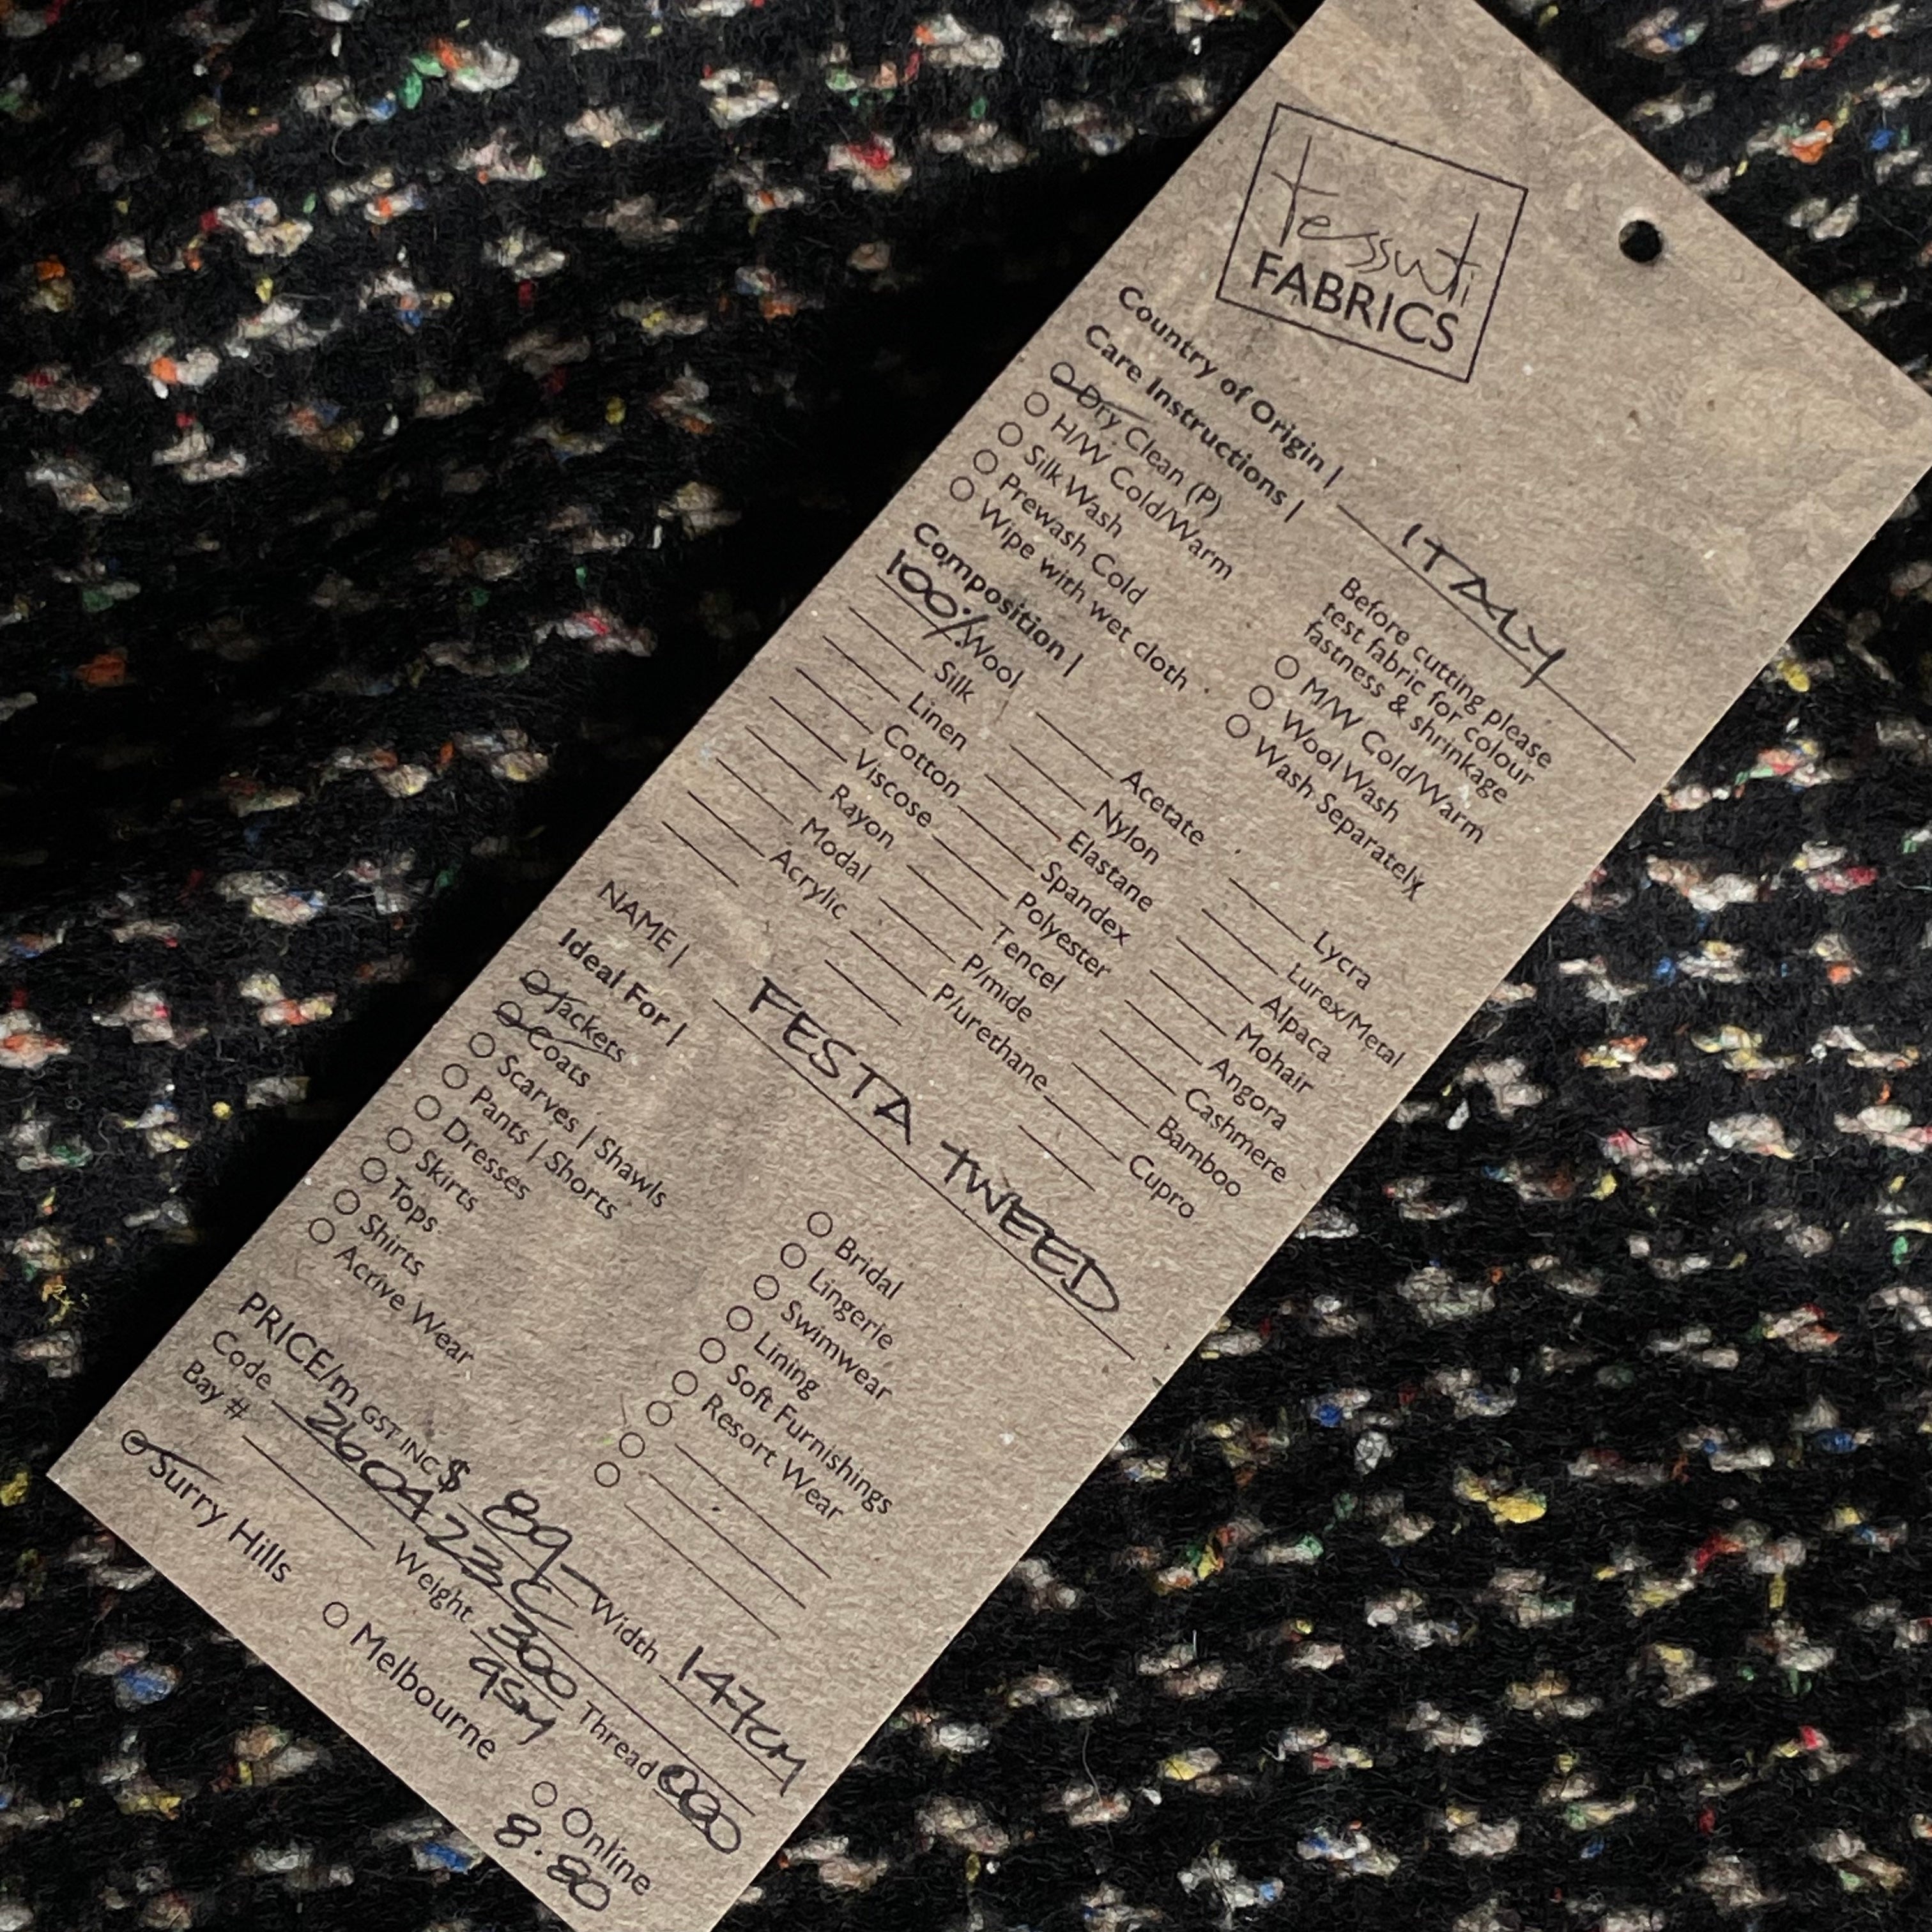 tessuti
FABRICS
Country of Origin | ITALY
Care Instructions |
Dry Clean (P)
H/W Cold/Warm
Silk Wash
Prewash Cold
Wipe with wet cloth
Before cutting please
test fabric for colour
fastness & shrinkage
M/W Cold/Warm
Wool Wash
Wash Separately
Composition |
100% Wool
Silk
Linen
Cotton
Viscose
Rayon
Modal
Acrylic
Acetate
Nylon
Elastane
Spandex
Polyester
Tencel
P/mide
P/urethane
Lycra
Lurex/Metal
Alpaca
Mohair
Angora
Cashmere
Bamboo
Cupro
NAME | FESTA TWEED
Ideal For |
Jackets
Coats
Scarves | Shawls
Pants | Shorts
Dresses
Skirts
Tops
Shirts
Acrive Wear
Bridal
Lingerie
Swimwear
Lining
Soft Furnishings
Resort Wear
PRICE/m GST INC $ 89- Width 147CM
Code 260423C
Bay # Weight 300 gsm Thread 000
Surry Hills Melbourne Online
8.80